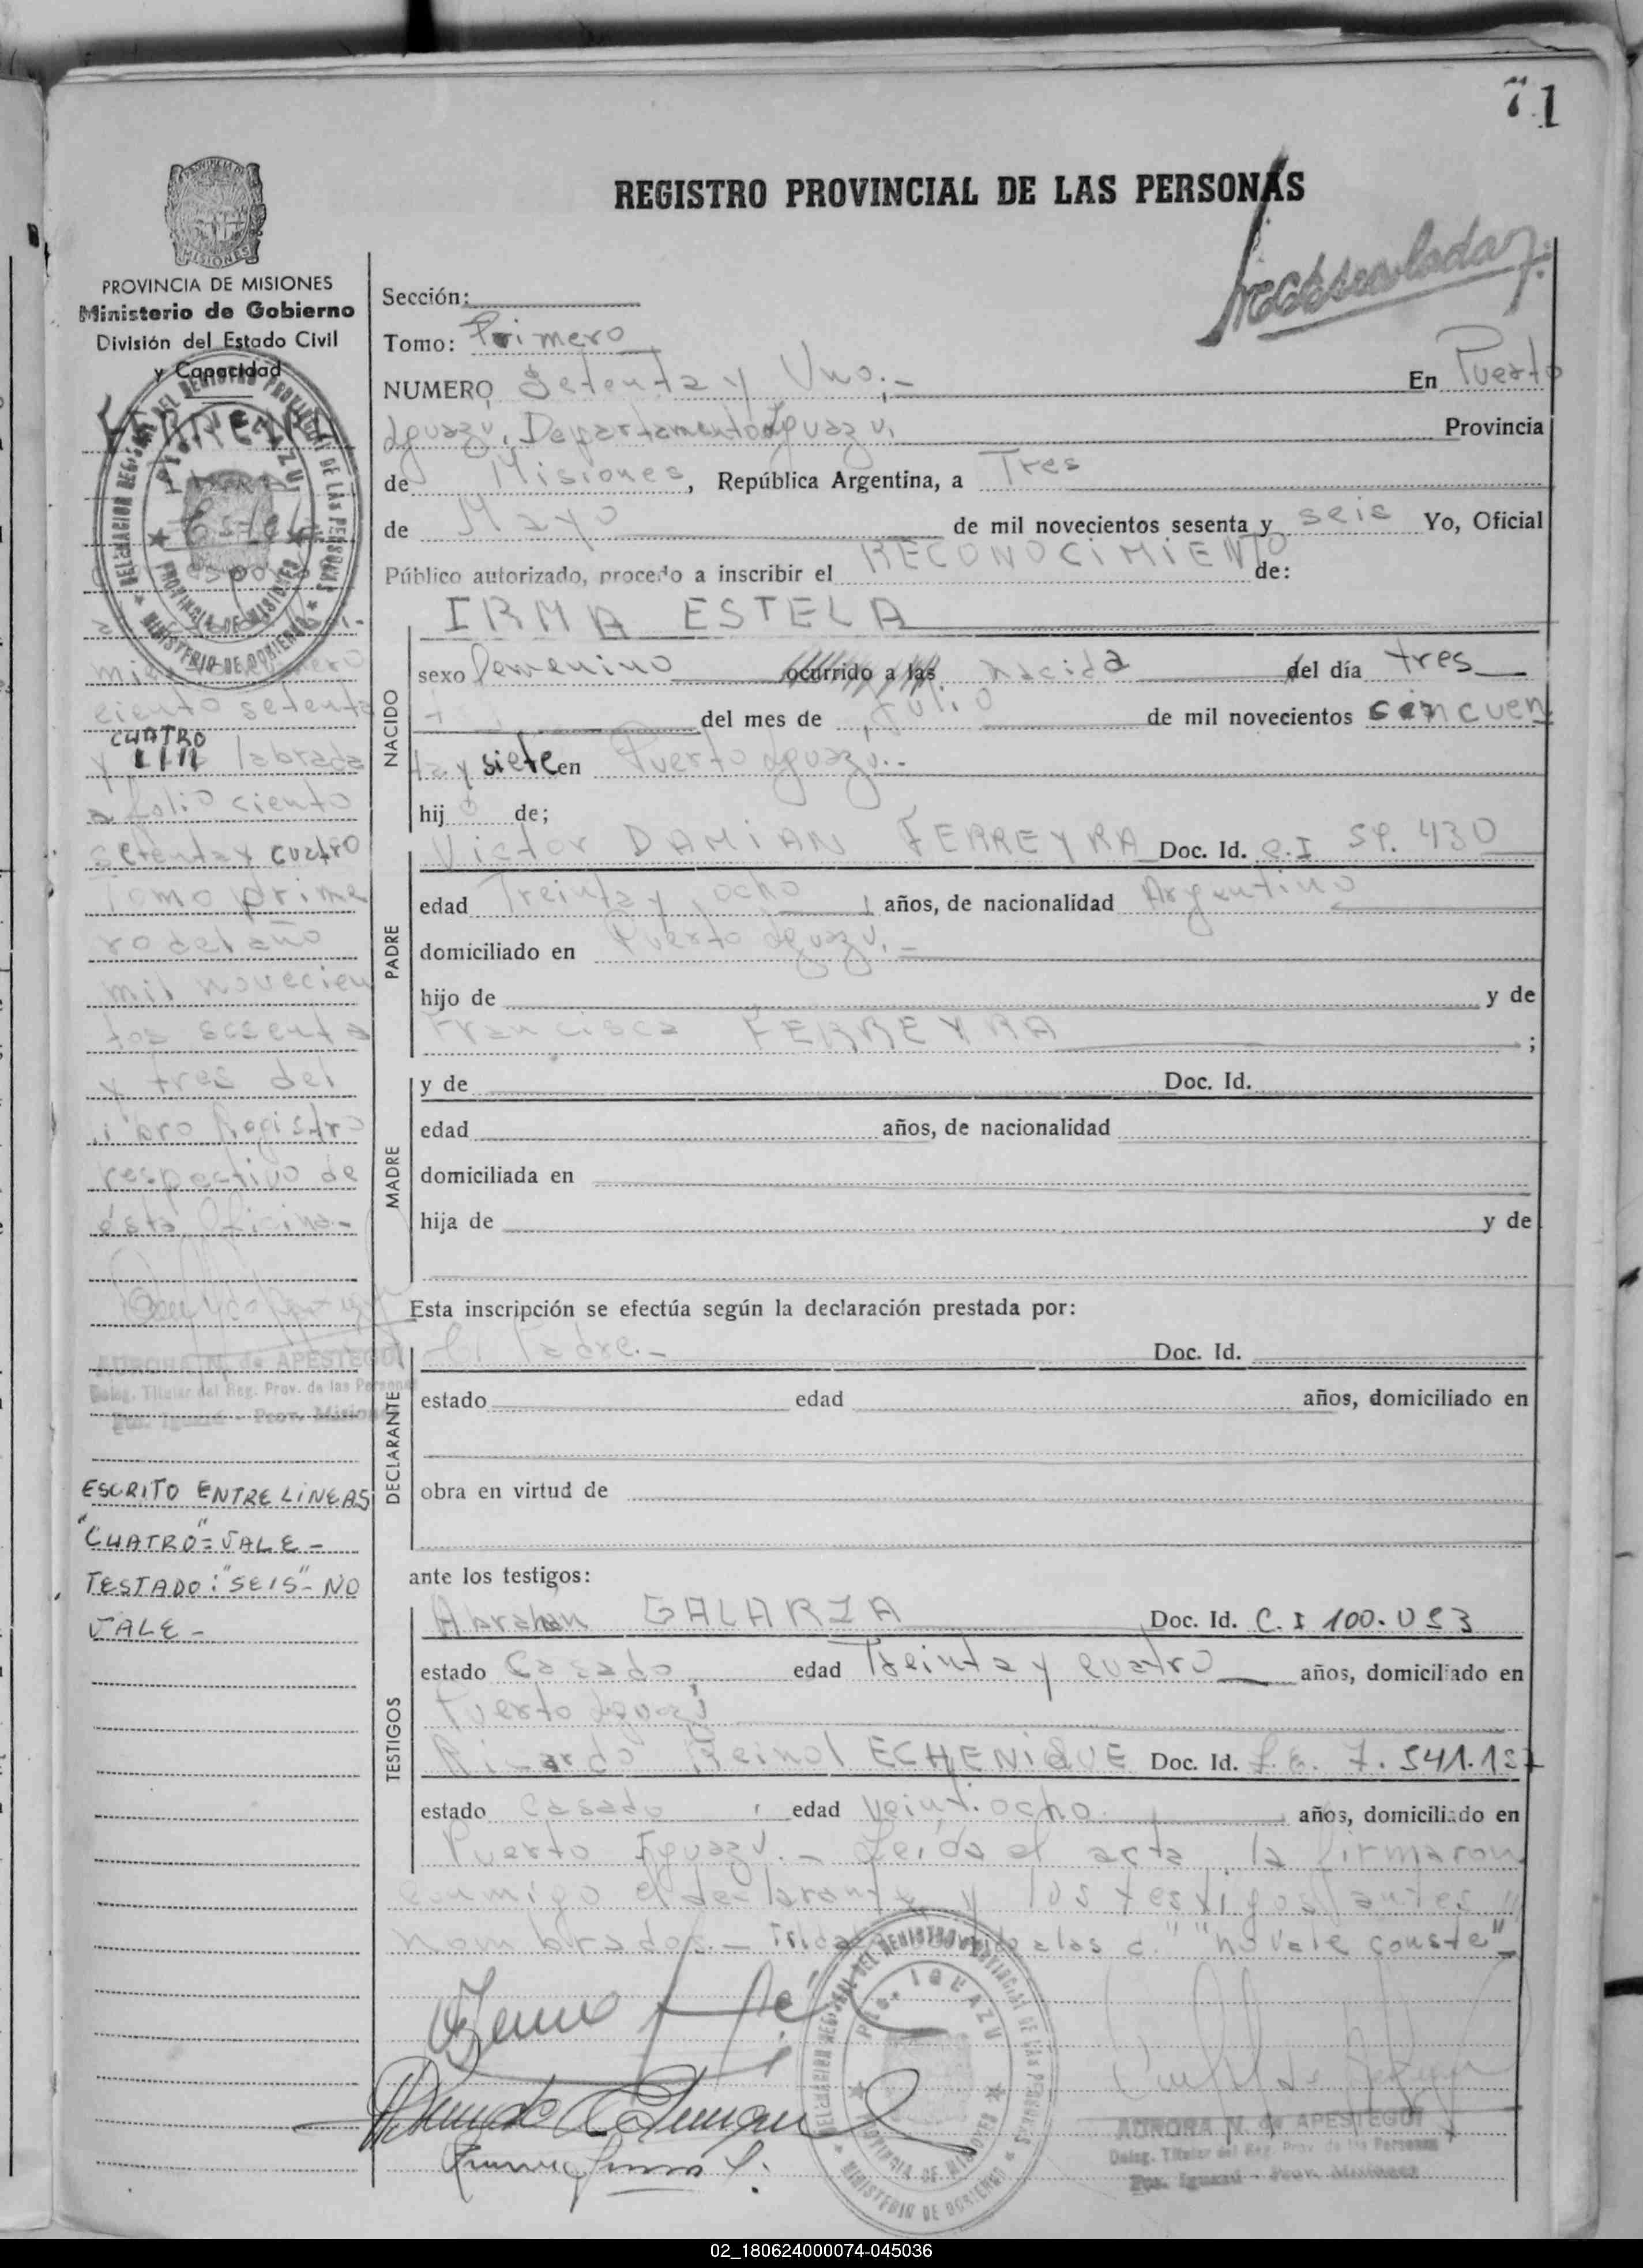 71
REGISTRO PROVINCIAL DE LAS PERSONAS
PROVINCIA DE MISIONES
Ministerio de Gobierno
División del Estado Civil
y Capacidad
DELEGACION REGIONAL DEL REGISTRO PROVINCIAL DE LAS PERSONAS
MINISTERIO DE GOBIERNO
PROVINCIA DE MISIONES
FERREYRA
IRMA
Estela
miento número
ciento setenta
CUATRO
y labrada
a folio ciento
setenta y cuatro
Tomo prime
ro del año
mil novecien
tos sesenta
y tres del
libro Registro
respectivo de
ésta Oficina.-
AURORA N. de APESTEGUI
Deleg. Titular del Reg. Prov. de las Personas
Pto. Iguazú - Prov. Misiones
ESCRITO ENTRE LINEAS
"CUATRO"= VALE -
TESTADO: "SEIS" - NO
VALE -
Sección:
Tomo: Primero
NUMERO Setenta y Uno.- En Puerto
Iguazú, Departamento Iguazú, Provincia
de Misiones, República Argentina, a Tres
de Mayo de mil novecientos sesenta y seis Yo, Oficial
Público autorizado, procedo a inscribir el RECONOCIMIENTO de:
IRMA ESTELA
NACIDO
sexo Femenino ocurrido a las nacida del día tres
del mes de Julio de mil novecientos cincuen
ta y siete en Puerto Iguazú.-
hij de;
PADRE
Victor DAMIAN FERREYRA Doc. Id. C.I 59.430
edad Treinta y ocho años, de nacionalidad Argentino
domiciliado en Puerto Iguazú.-
hijo de y de
Francisca FERREYRA ;
MADRE
y de Doc. Id.
edad años, de nacionalidad
domiciliada en
hija de y de
Esta inscripción se efectúa según la declaración prestada por:
DECLARANTE
El Padre.- Doc. Id.
estado edad años, domiciliado en
obra en virtud de
ante los testigos:
TESTIGOS
Abrahan GALARZA Doc. Id. C.I 100.053
estado Casado edad Treinta y cuatro años, domiciliado en
Puerto Iguazú
Ricardo ECHENIQUE Doc. Id. 7.541.137
estado Casado edad veintiocho años, domiciliado en
Puerto Iguazú.- Leída el acta, la firmaron
conmigo el declarante y los testigos antes
nombrados.- a las "no vale conste"
DELEGACION REGIONAL DEL REGISTRO PROVINCIAL DE LAS PERSONAS
PTO. IGUAZU
PROVINCIA DE MISIONES
MINISTERIO DE GOBIERNO
AURORA N. de APESTEGUI
Deleg. Titular del Reg. Prov. de las Personas
Pto. Iguazú - Prov. Misiones
02_180624000074-045036